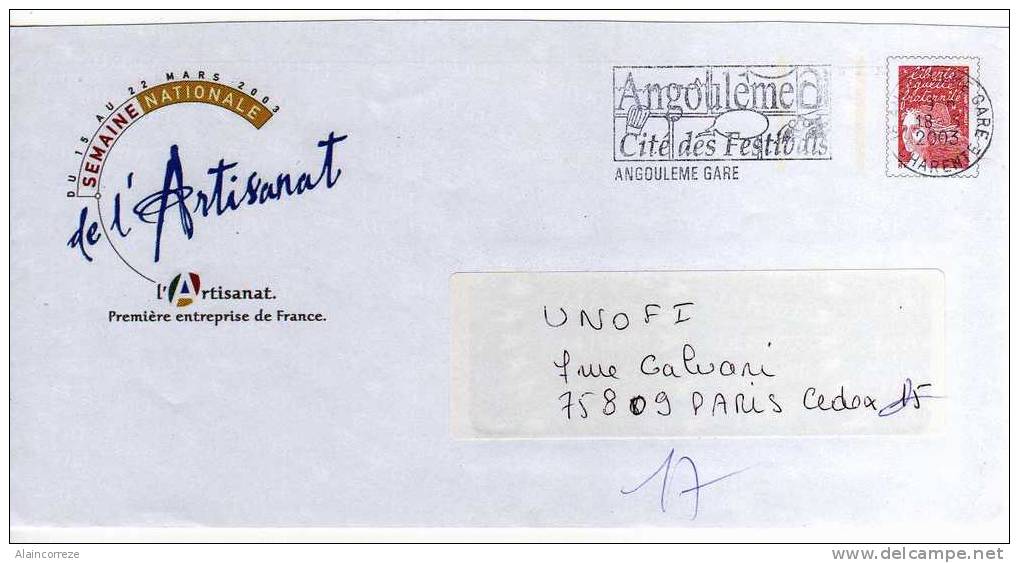 DU 15 AU 22 MARS 2003
SEMAINE NATIONALE
de l'Artisanat
l'Artisanat.
Première entreprise de France.
Angoulême
Cité des Festivals
ANGOULEME GARE
Liberté
égalité
fraternité
GARE
18-
2003
CHARENTE
UNOFI
7 rue Galvani
75809 PARIS Cedex 15
17
Alaincorreze
www.delcampe.net